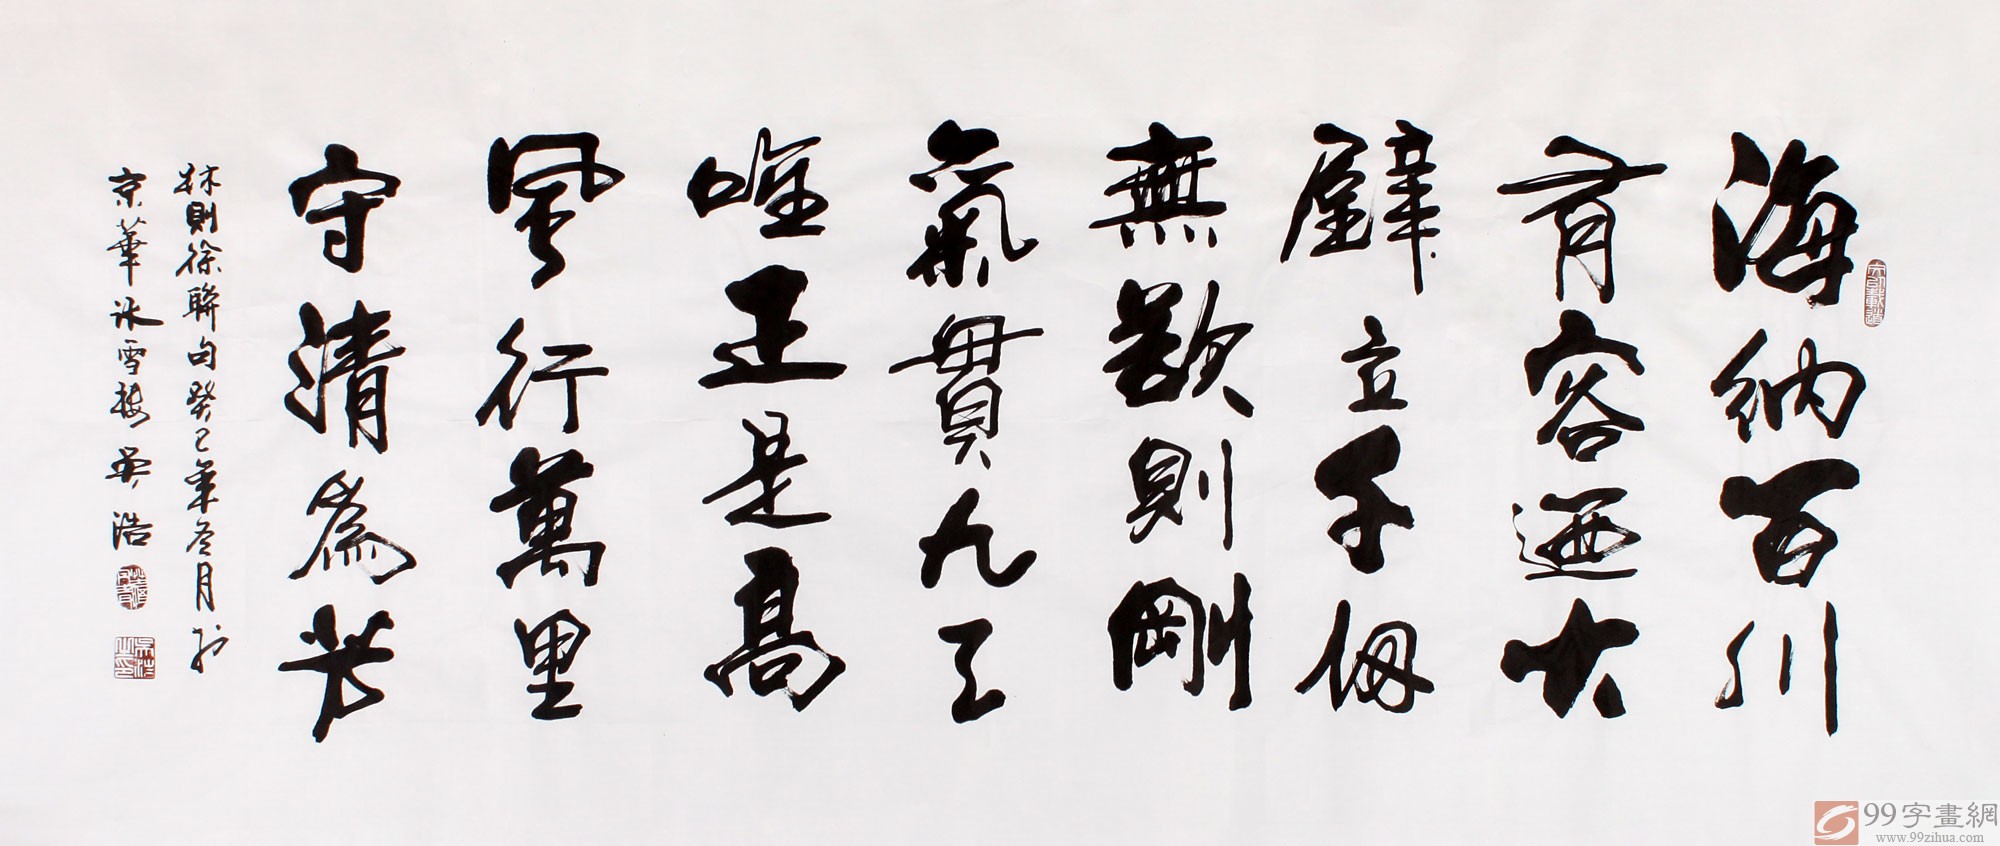 海納百川
有容迺大
壁立千仞
無欲則剛
氣貫九天
唯正是高
風行萬里
守清為尚
林則徐聯句癸巳年冬月於
京華冰雪樓吳浩
99字畫網
www.99zihua.com